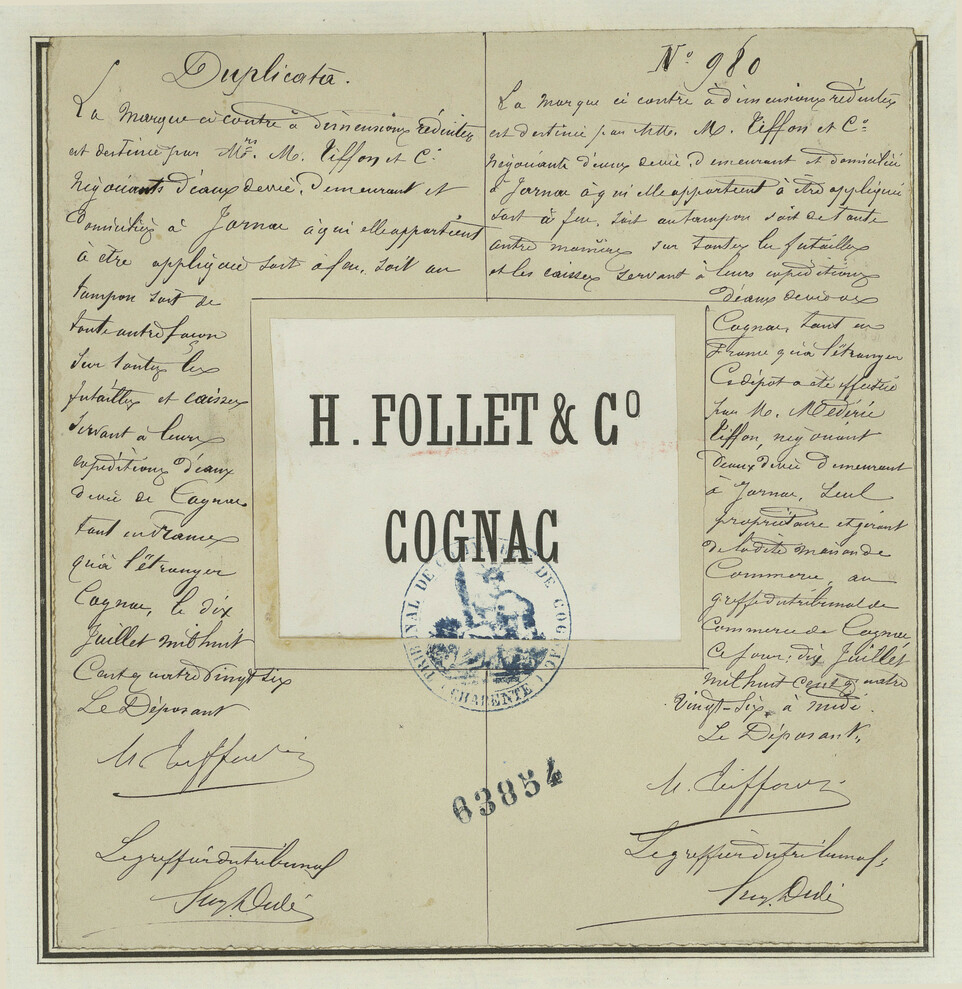 Duplicata.
La marque ci contre à dimensions réduites
est destinée par Mrs. M. Tiffon et Cie
négociants d'eaux de vie, demeurant et
domiciliés à Jarnac à qui elle appartient
à être appliquée soit à feu, soit au
tampon soit de
toute autre façon
sur toutes les
futailles et caisses
servant à leurs
expéditions d'eaux
de vie de Cognac
tant en France
qu'à l'étranger
Cognac, le dix
Juillet mil huit
Cent quatre vingt six
Le Déposant
M. Tiffon
Le greffier du tribunal
No 980
La marque ci contre à dimensions réduites
est destinée par MM. M. Tiffon et Co
négociants d'eaux de vie, demeurant et domicilié
à Jarnac à qui elle appartient à être appliquée
soit à feu, soit au tampon soit de toute
autre manière sur toutes les futailles
et les caisses servant à leurs expéditions
d'eaux de vie de
Cognac, tant en
France qu'à l'étranger
Ce dépôt a été effectué
par M. Médéric
Tiffon, négociant
d'eaux de vie demeurant
à Jarnac, seul
propriétaire et gérant
de la dite maison de
Commerce, au
greffe du tribunal de
Commerce de Cognac
Ce jour, dix Juillet
mil huit cent quatre
vingt-six à midi.
Le Déposant,
M. Tiffon
Le greffier du tribunal,
H. FOLLET & CO
COGNAC
TRIBUNAL DE COMMERCE DE COGNAC
(CHARENTE)
63854